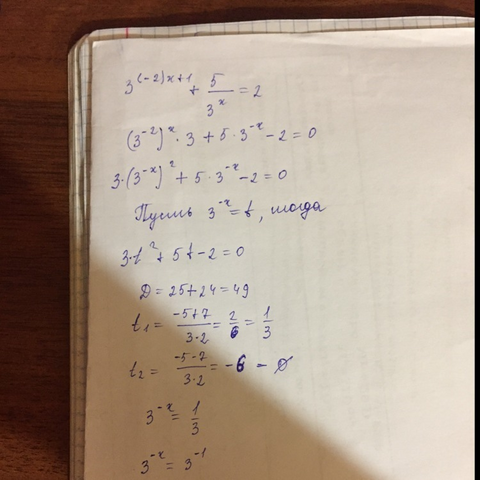 3^{(-2)x+1} + \frac{5}{3^x} = 2
(3^{-2})^x · 3 + 5 · 3^{-x} - 2 = 0
3·(3^{-x})^2 + 5 · 3^{-x} - 2 = 0
Пусть 3^{-x} = t, тогда
3·t^2 + 5t - 2 = 0
D = 25 + 24 = 49
t_1 = \frac{-5+7}{3·2} = \frac{2}{6} = \frac{1}{3}
t_2 = \frac{-5-7}{3·2} = -6 - ∅
3^{-x} = \frac{1}{3}
3^{-x} = 3^{-1}